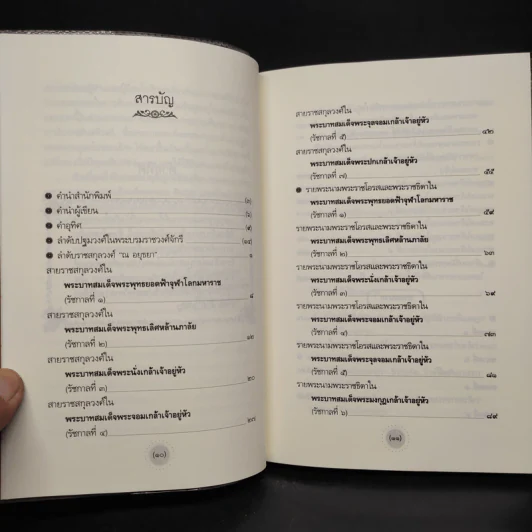 สารบัญ
คำนำสำนักพิมพ์ (๓)
คำนำผู้เขียน
คำอุทิศ
ลำดับปฐมวงศ์ในพระบรมราชวงศ์จักรี
ลำดับราชสกุลวงศ์ "ณ อยุธยา" ๑
สายราชสกุลวงศ์ใน
พระบาทสมเด็จพระพุทธยอดฟ้าจุฬาโลกมหาราช
(รัชกาลที่ ๑) ๘
สายราชสกุลวงศ์ใน
พระบาทสมเด็จพระพุทธเลิศหล้านภาลัย
(รัชกาลที่ ๒) ๑๒
สายราชสกุลวงศ์ใน
พระบาทสมเด็จพระนั่งเกล้าเจ้าอยู่หัว
(รัชกาลที่ ๓) ๒๐
สายราชสกุลวงศ์ใน
พระบาทสมเด็จพระจอมเกล้าเจ้าอยู่หัว
(รัชกาลที่ ๔) ๒๗
(๑๐)
สายราชสกุลวงศ์ใน
พระบาทสมเด็จพระจุลจอมเกล้าเจ้าอยู่หัว
(รัชกาลที่ ๕) ๔๒
สายราชสกุลวงศ์ใน
พระบาทสมเด็จพระปกเกล้าเจ้าอยู่หัว
(รัชกาลที่ ๗) ๕๕
รายพระนามพระราชโอรสและพระราชธิดาใน
พระบาทสมเด็จพระพุทธยอดฟ้าจุฬาโลกมหาราช
(รัชกาลที่ ๑) ๕๙
รายพระนามพระราชโอรสและพระราชธิดาใน
พระบาทสมเด็จพระพุทธเลิศหล้านภาลัย
(รัชกาลที่ ๒) ๖๓
รายพระนามพระราชโอรสและพระราชธิดาใน
พระบาทสมเด็จพระนั่งเกล้าเจ้าอยู่หัว
(รัชกาลที่ ๓) ๖๙
รายพระนามพระราชโอรสและพระราชธิดาใน
พระบาทสมเด็จพระจอมเกล้าเจ้าอยู่หัว
(รัชกาลที่ ๔) ๗๓
รายพระนามพระราชโอรสและพระราชธิดาใน
พระบาทสมเด็จพระจุลจอมเกล้าเจ้าอยู่หัว
(รัชกาลที่ ๕) ๘๑
รายพระนามพระราชธิดาใน
พระบาทสมเด็จพระมงกุฎเกล้าเจ้าอยู่หัว
(รัชกาลที่ ๖) ๘๙
(๑๑)